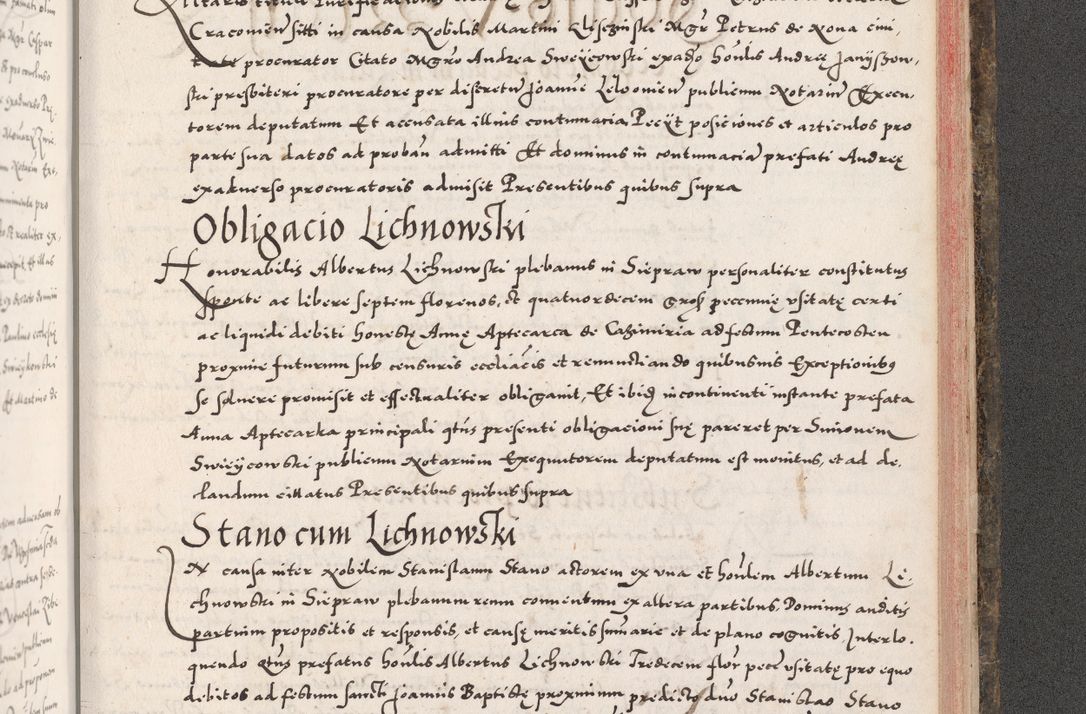 Craconien̄ sitti in causa Nobilis Martini Clisczinski Mgr̄ Petrus de Nona cini,
procurator Citato Mgrō Andrea Sweÿcowski exadṡo honūlis Andreę Janÿszow,
ski presbiteri procuratore per discretū Joanne Lelowien̄ publicum Notariū Execu,
torem deputatum Et accusata illius contumacia Pecÿt posiciones et articulos pro
parte sua datos ad proban̄ admitti Et dominus in contumaciā prefati Andreę
exadverso procuratoris admisit Presentibus quibus supra
Obligacio Lichnowski
Honorabilis Albertus Lichnowski plebanus in Siepraw personaliter constitutus
sponte ac libere septem florenos, et quatuordecem gross pecunię usitatę certi
ac liquidi debiti honestę Annę Aptecarca de Cazimiria ad festum Pentecosten
proxime futurum sub censuris eccliācis et renunctiando quibusuis Exceptionibus
se soluere promisit et effectualiter obligauit, Et ibid̄ incontinenti instante prefata
Anna Aptecarka principali qtūs presenti obligacioni suę pareret per Simonem
Swieÿcowski publicum Notarium Exequutorem deputatum est monitus, et ad de,
landum citlatus Presentibus quibus supra
Stano cum Lichnowski
In causa inter Nobilem Stanislaum Stano actorem ex una et honūlem Albertum Li,
chnowski in Siepraw plebanum reum conuentum ex altera partibus, Dominus auditis
partium propositis et responsis, et causę meritis sum̄arie et de plano cognitis, Interlo,
quendo qtūs prefatus honūlis Albertus Lichnowski Tredecem flor̄ pecc̄ usitatę pro equo
debitos ad festum sancti Joannis Baptistę proximum predicto duo Stanislao Stano